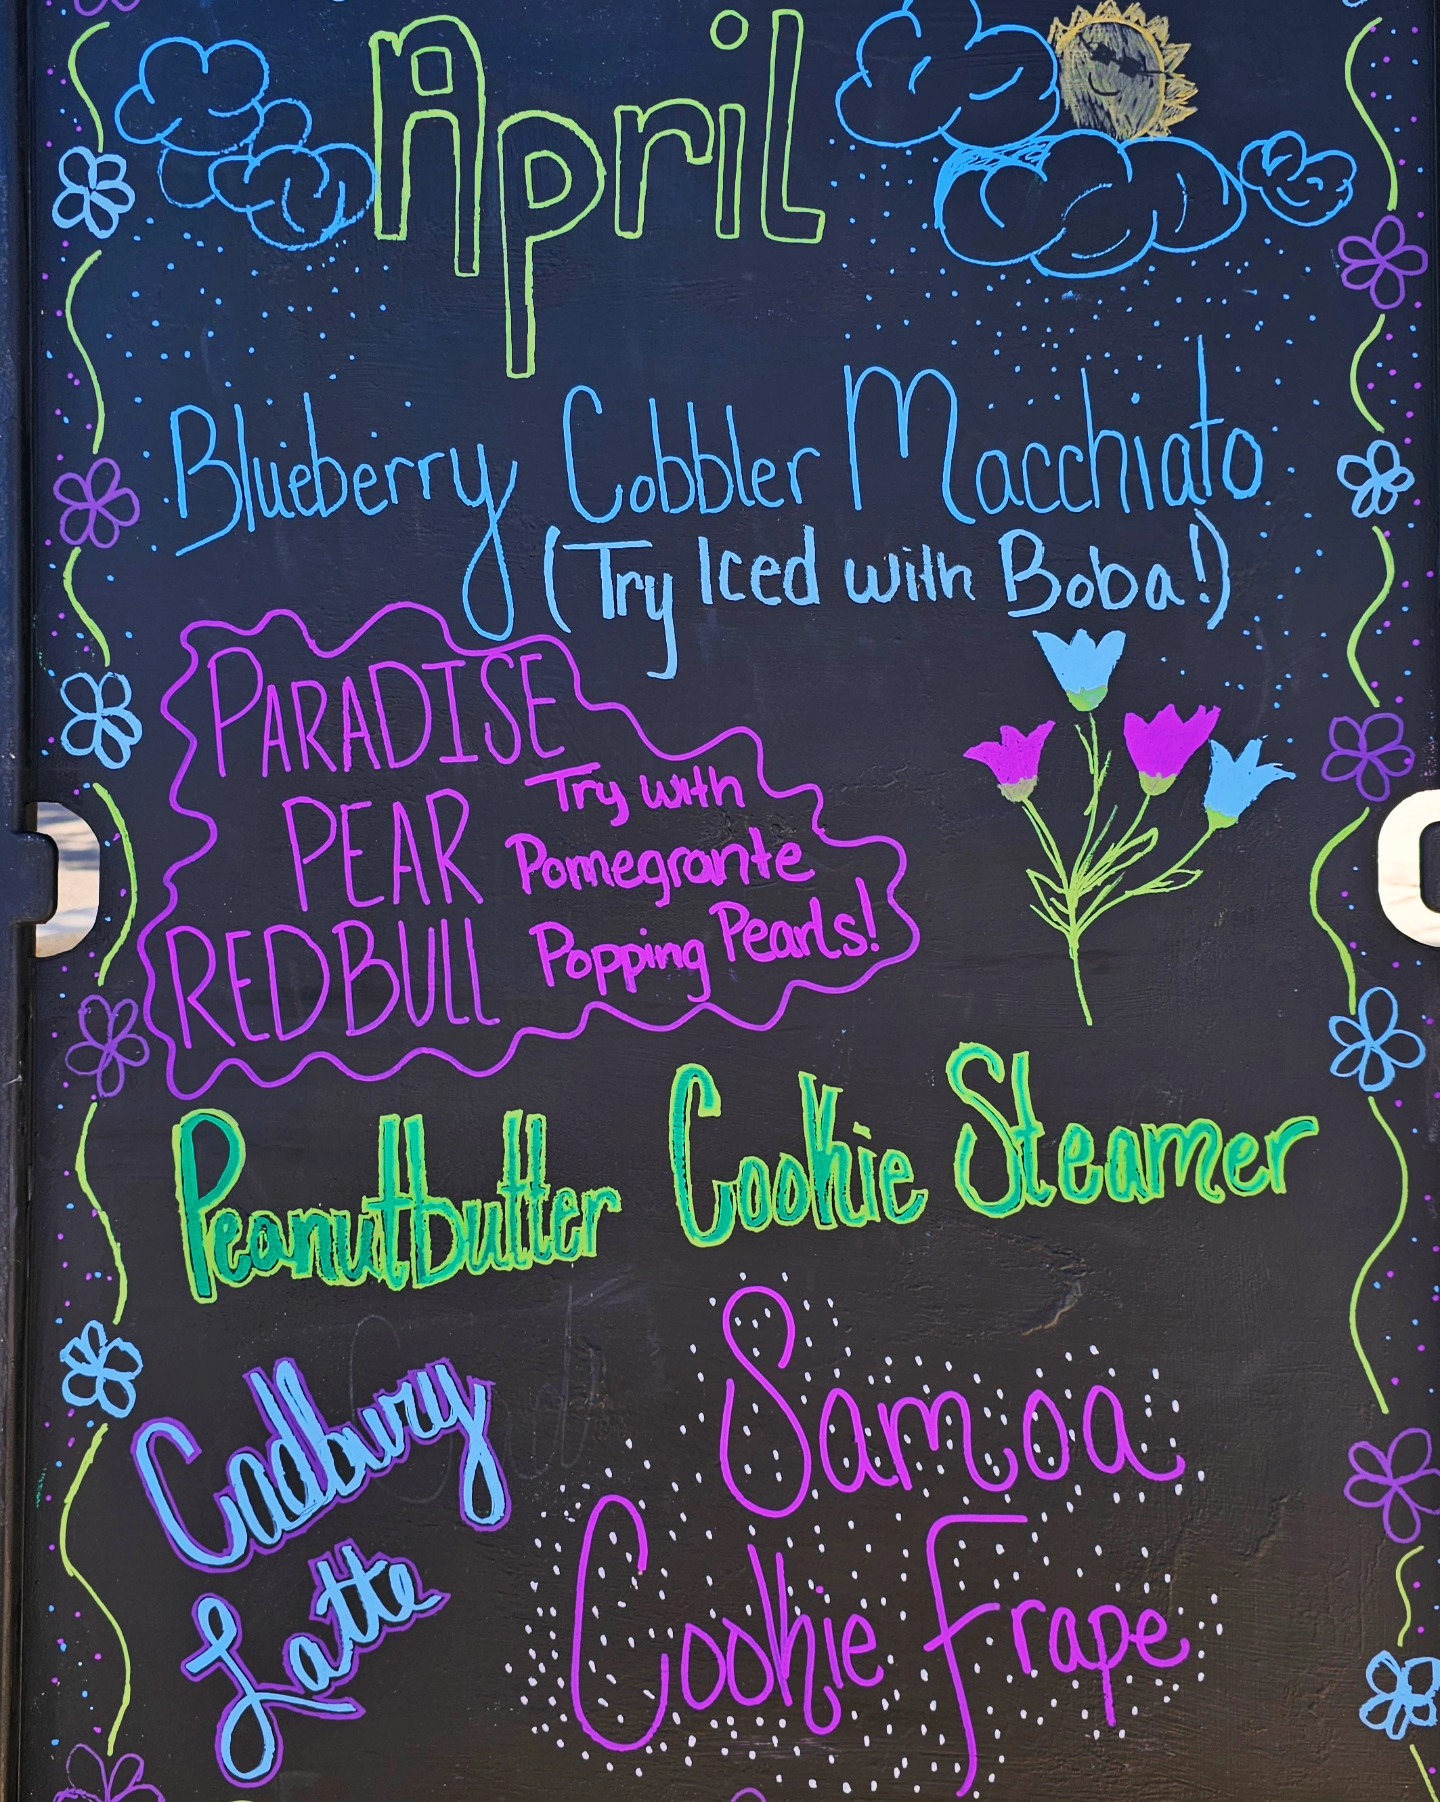 April
Blueberry Cobbler Macchiato
(Try Iced with Boba!)
PARADISE
PEAR
REDBULL
Try with
Pomegrante
Popping Pearls!
Peanutbutter Cookie Steamer
Cadbury
Latte
Samoa
Cookie Frape